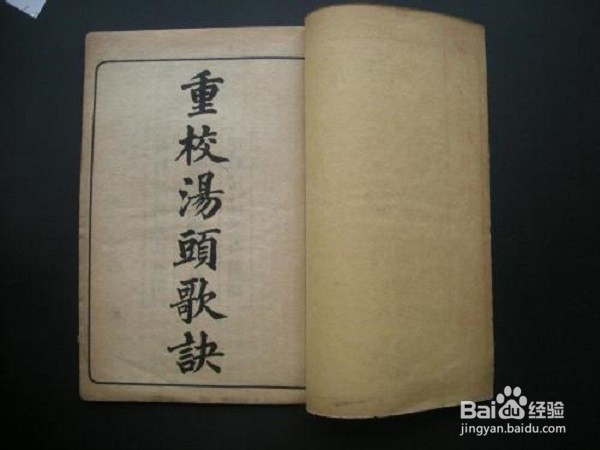 重校湯頭歌訣
Baidu经验
jingyan.baidu.com